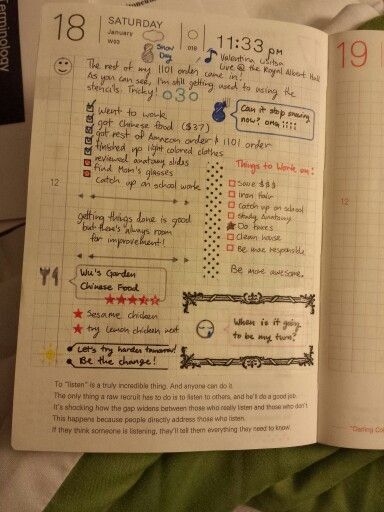 terminology
18
SATURDAY
January
W03
Snow
Day
018
11:33 pm
Valentina Lisitsa
Live @ the Royal Albert Hall
The rest of my 1101 order came in!
As you can see, I'm still getting used to using the
stencils. Tricky!
Can it stop snowing
now? omg
Went to work
got Chinese food ($37)
got rest of Amazon order & 1101 order
finished up light colored clothes
reviewed anatomy slides
find Mom's glasses
Catch up on school work
12
getting things done is good
but there's always room
for improvement!
Things to work on:
Save $$$
Iron hair
Catch up on school
Study Anatomy
Do taxes
Clean house
Be more responsible
Be more awesome.
Wu's Garden
Chinese Food
Sesame chicken
try lemon chicken next
Let's try harder tomorrow!
Be the change!
When is it going
to be my turn?
To "listen" is a truly incredible thing. And anyone can do it.
The only thing a raw recruit has to do is to listen to others, and he'll do a good job.
It's shocking how the gap widens between those who really listen and those who don't.
This happens because people directly address those who listen.
If they think someone is listening, they'll tell them everything they need to know.
19
12
"Darling Co